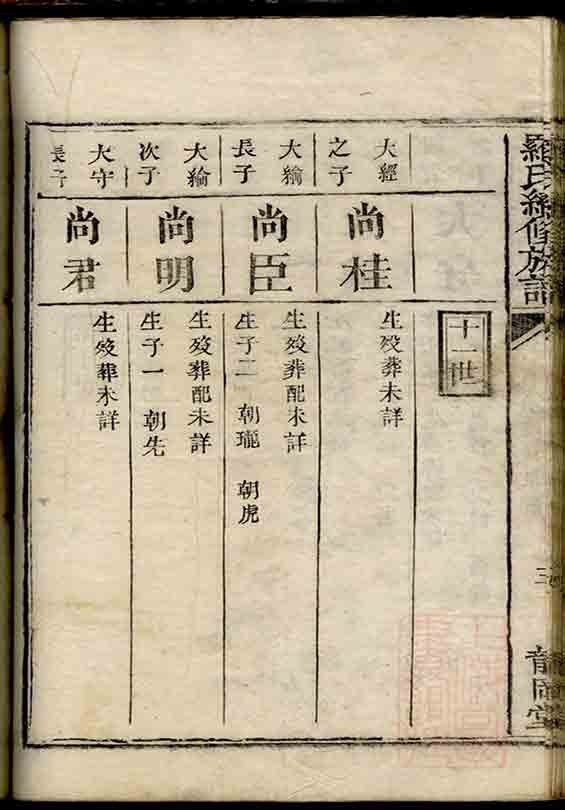 羅氏續修族譜
十一世
大經
之子
尚桂
生歿葬未詳
大綸
長子
尚臣
生歿葬配未詳
生子二 朝瓏 朝虎
大綸
次子
尚明
生歿葬配未詳
生子一 朝先
大守
長子
尚君
生歿葬未詳